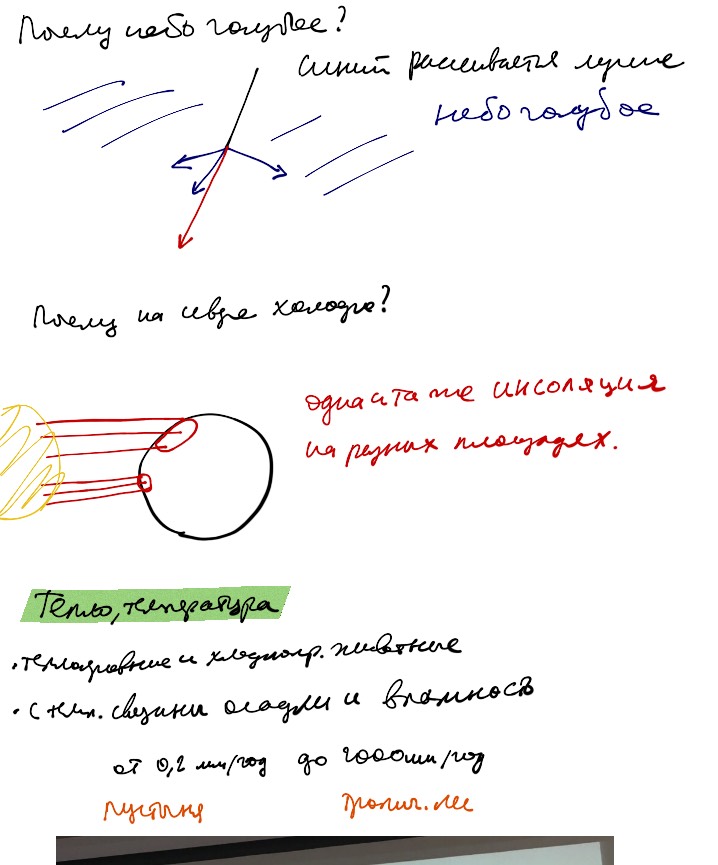 Почему небо голубое?
синий рассеивается лучше
небо голубое
Почему на севере холодно?
одна и та же инсоляция
на разных площадях.
Тепло, температура
• теплокровные и хладнокр. животные
• с темп. связаны осадки и влажность
от 0,2 мм/год до 2000мм/год
пустыня тропич. лес